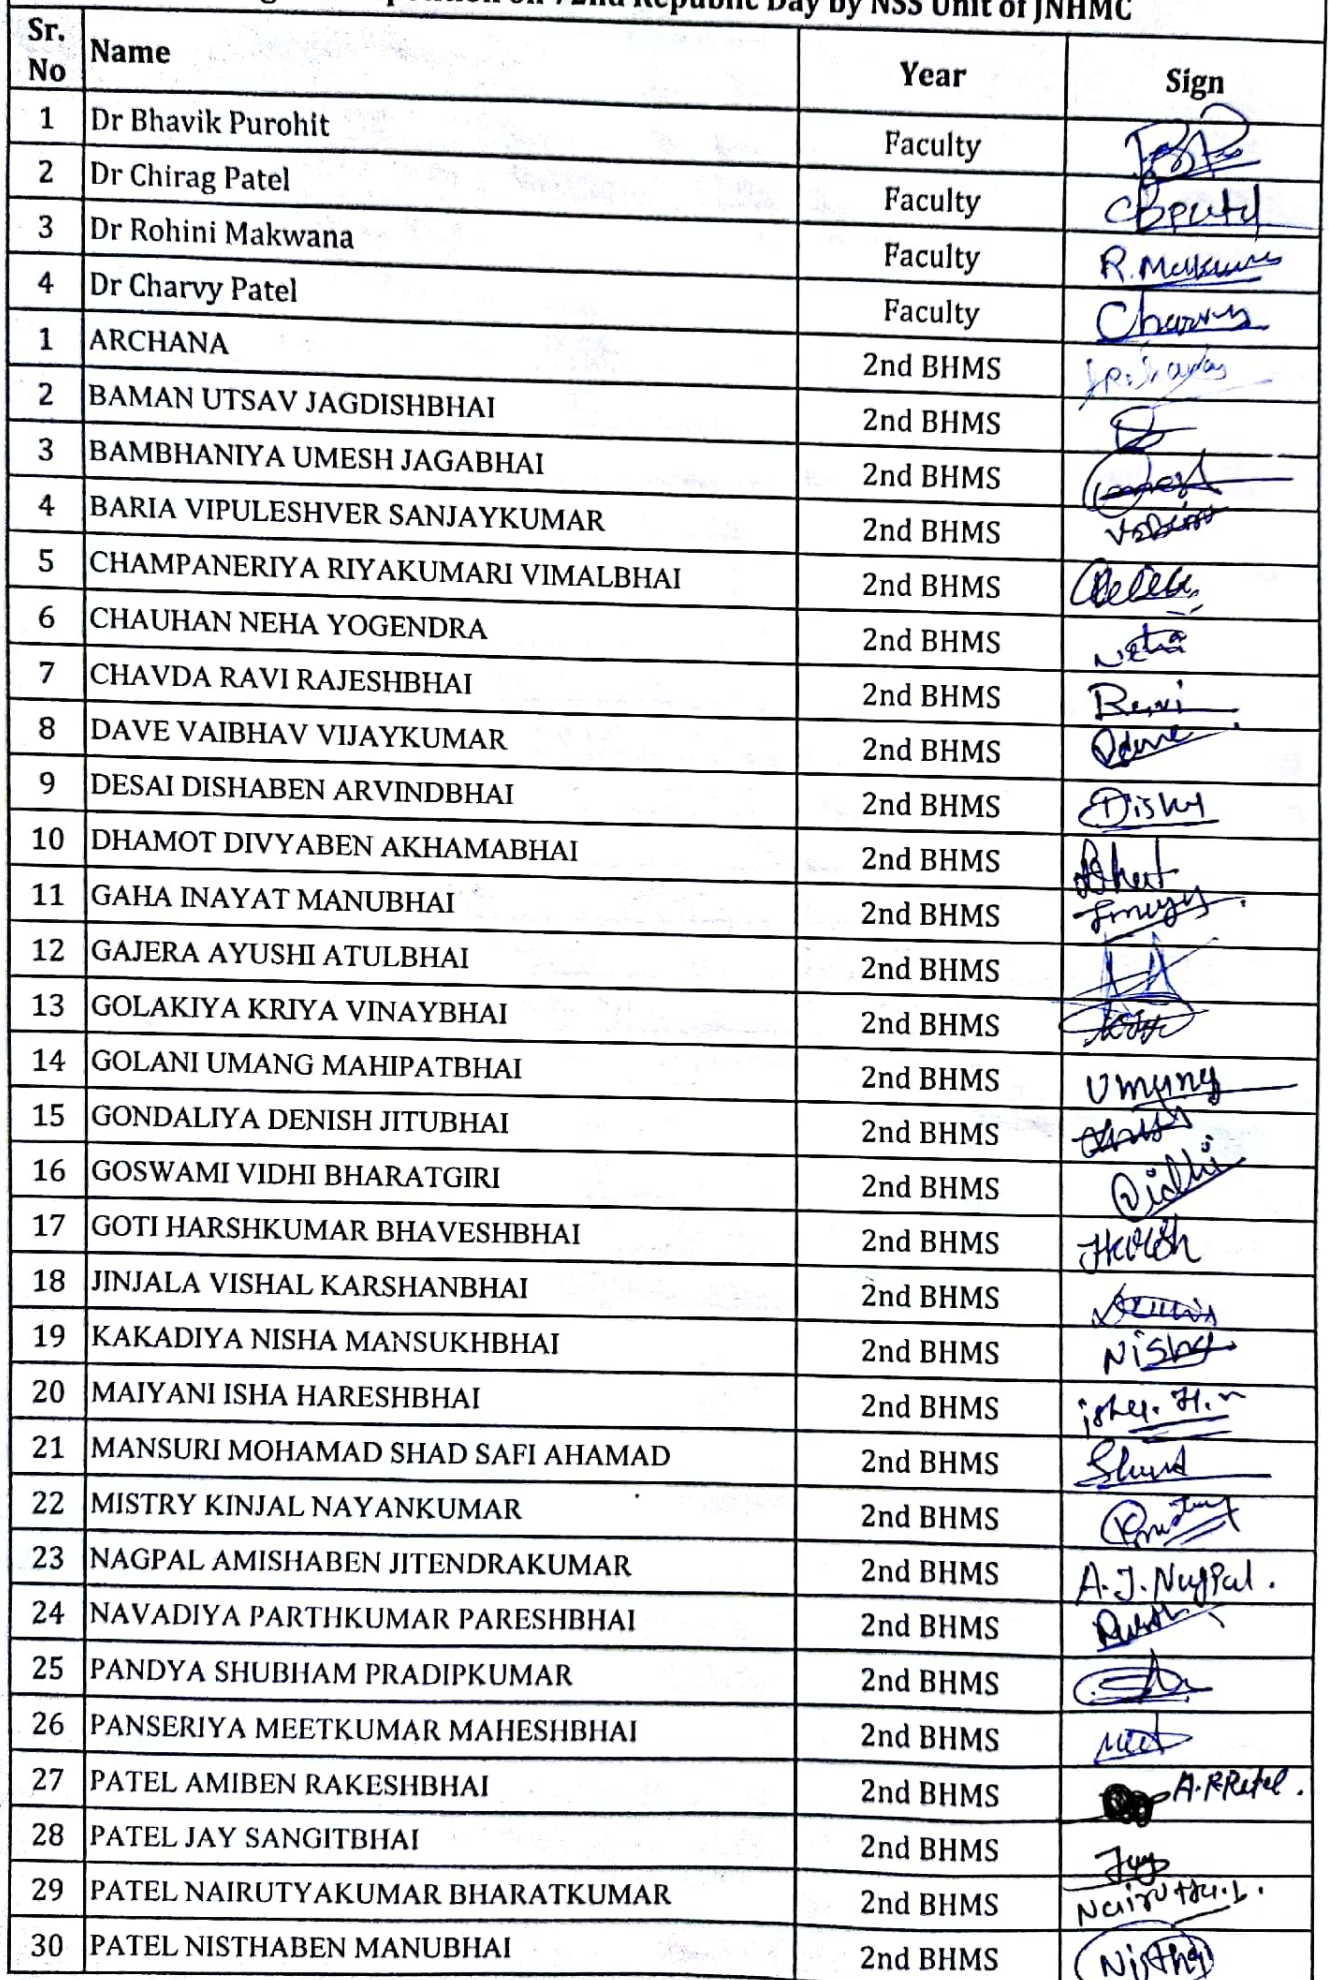 on 72nd Republic Day by NSS Unit of JNHMC
Sr. No Name Year Sign
1 Dr Bhavik Purohit Faculty
2 Dr Chirag Patel Faculty
3 Dr Rohini Makwana Faculty R. Makwana
4 Dr Charvy Patel Faculty Charvy
1 ARCHANA 2nd BHMS
2 BAMAN UTSAV JAGDISHBHAI 2nd BHMS
3 BAMBHANIYA UMESH JAGABHAI 2nd BHMS
4 BARIA VIPULESHVER SANJAYKUMAR 2nd BHMS
5 CHAMPANERIYA RIYAKUMARI VIMALBHAI 2nd BHMS
6 CHAUHAN NEHA YOGENDRA 2nd BHMS Neha
7 CHAVDA RAVI RAJESHBHAI 2nd BHMS Ravi
8 DAVE VAIBHAV VIJAYKUMAR 2nd BHMS
9 DESAI DISHABEN ARVINDBHAI 2nd BHMS Disha
10 DHAMOT DIVYABEN AKHAMABHAI 2nd BHMS
11 GAHA INAYAT MANUBHAI 2nd BHMS
12 GAJERA AYUSHI ATULBHAI 2nd BHMS
13 GOLAKIYA KRIYA VINAYBHAI 2nd BHMS
14 GOLANI UMANG MAHIPATBHAI 2nd BHMS Umang
15 GONDALIYA DENISH JITUBHAI 2nd BHMS
16 GOSWAMI VIDHI BHARATGIRI 2nd BHMS Vidhi
17 GOTI HARSHKUMAR BHAVESHBHAI 2nd BHMS Harsh
18 JINJALA VISHAL KARSHANBHAI 2nd BHMS
19 KAKADIYA NISHA MANSUKHBHAI 2nd BHMS Nisha
20 MAIYANI ISHA HARESHBHAI 2nd BHMS isha. H. m
21 MANSURI MOHAMAD SHAD SAFI AHAMAD 2nd BHMS Shad
22 MISTRY KINJAL NAYANKUMAR 2nd BHMS
23 NAGPAL AMISHABEN JITENDRAKUMAR 2nd BHMS A. J. Nagpal.
24 NAVADIYA PARTHKUMAR PARESHBHAI 2nd BHMS
25 PANDYA SHUBHAM PRADIPKUMAR 2nd BHMS
26 PANSERIYA MEETKUMAR MAHESHBHAI 2nd BHMS Meet
27 PATEL AMIBEN RAKESHBHAI 2nd BHMS A. R. Patel.
28 PATEL JAY SANGITBHAI 2nd BHMS Jay
29 PATEL NAIRUTYAKUMAR BHARATKUMAR 2nd BHMS
30 PATEL NISTHABEN MANUBHAI 2nd BHMS Nistha